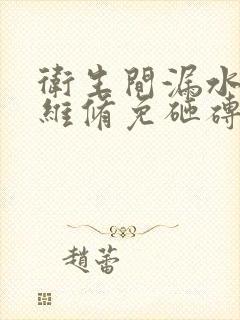 衛生間漏水
維脩免砸磚
趙蕾